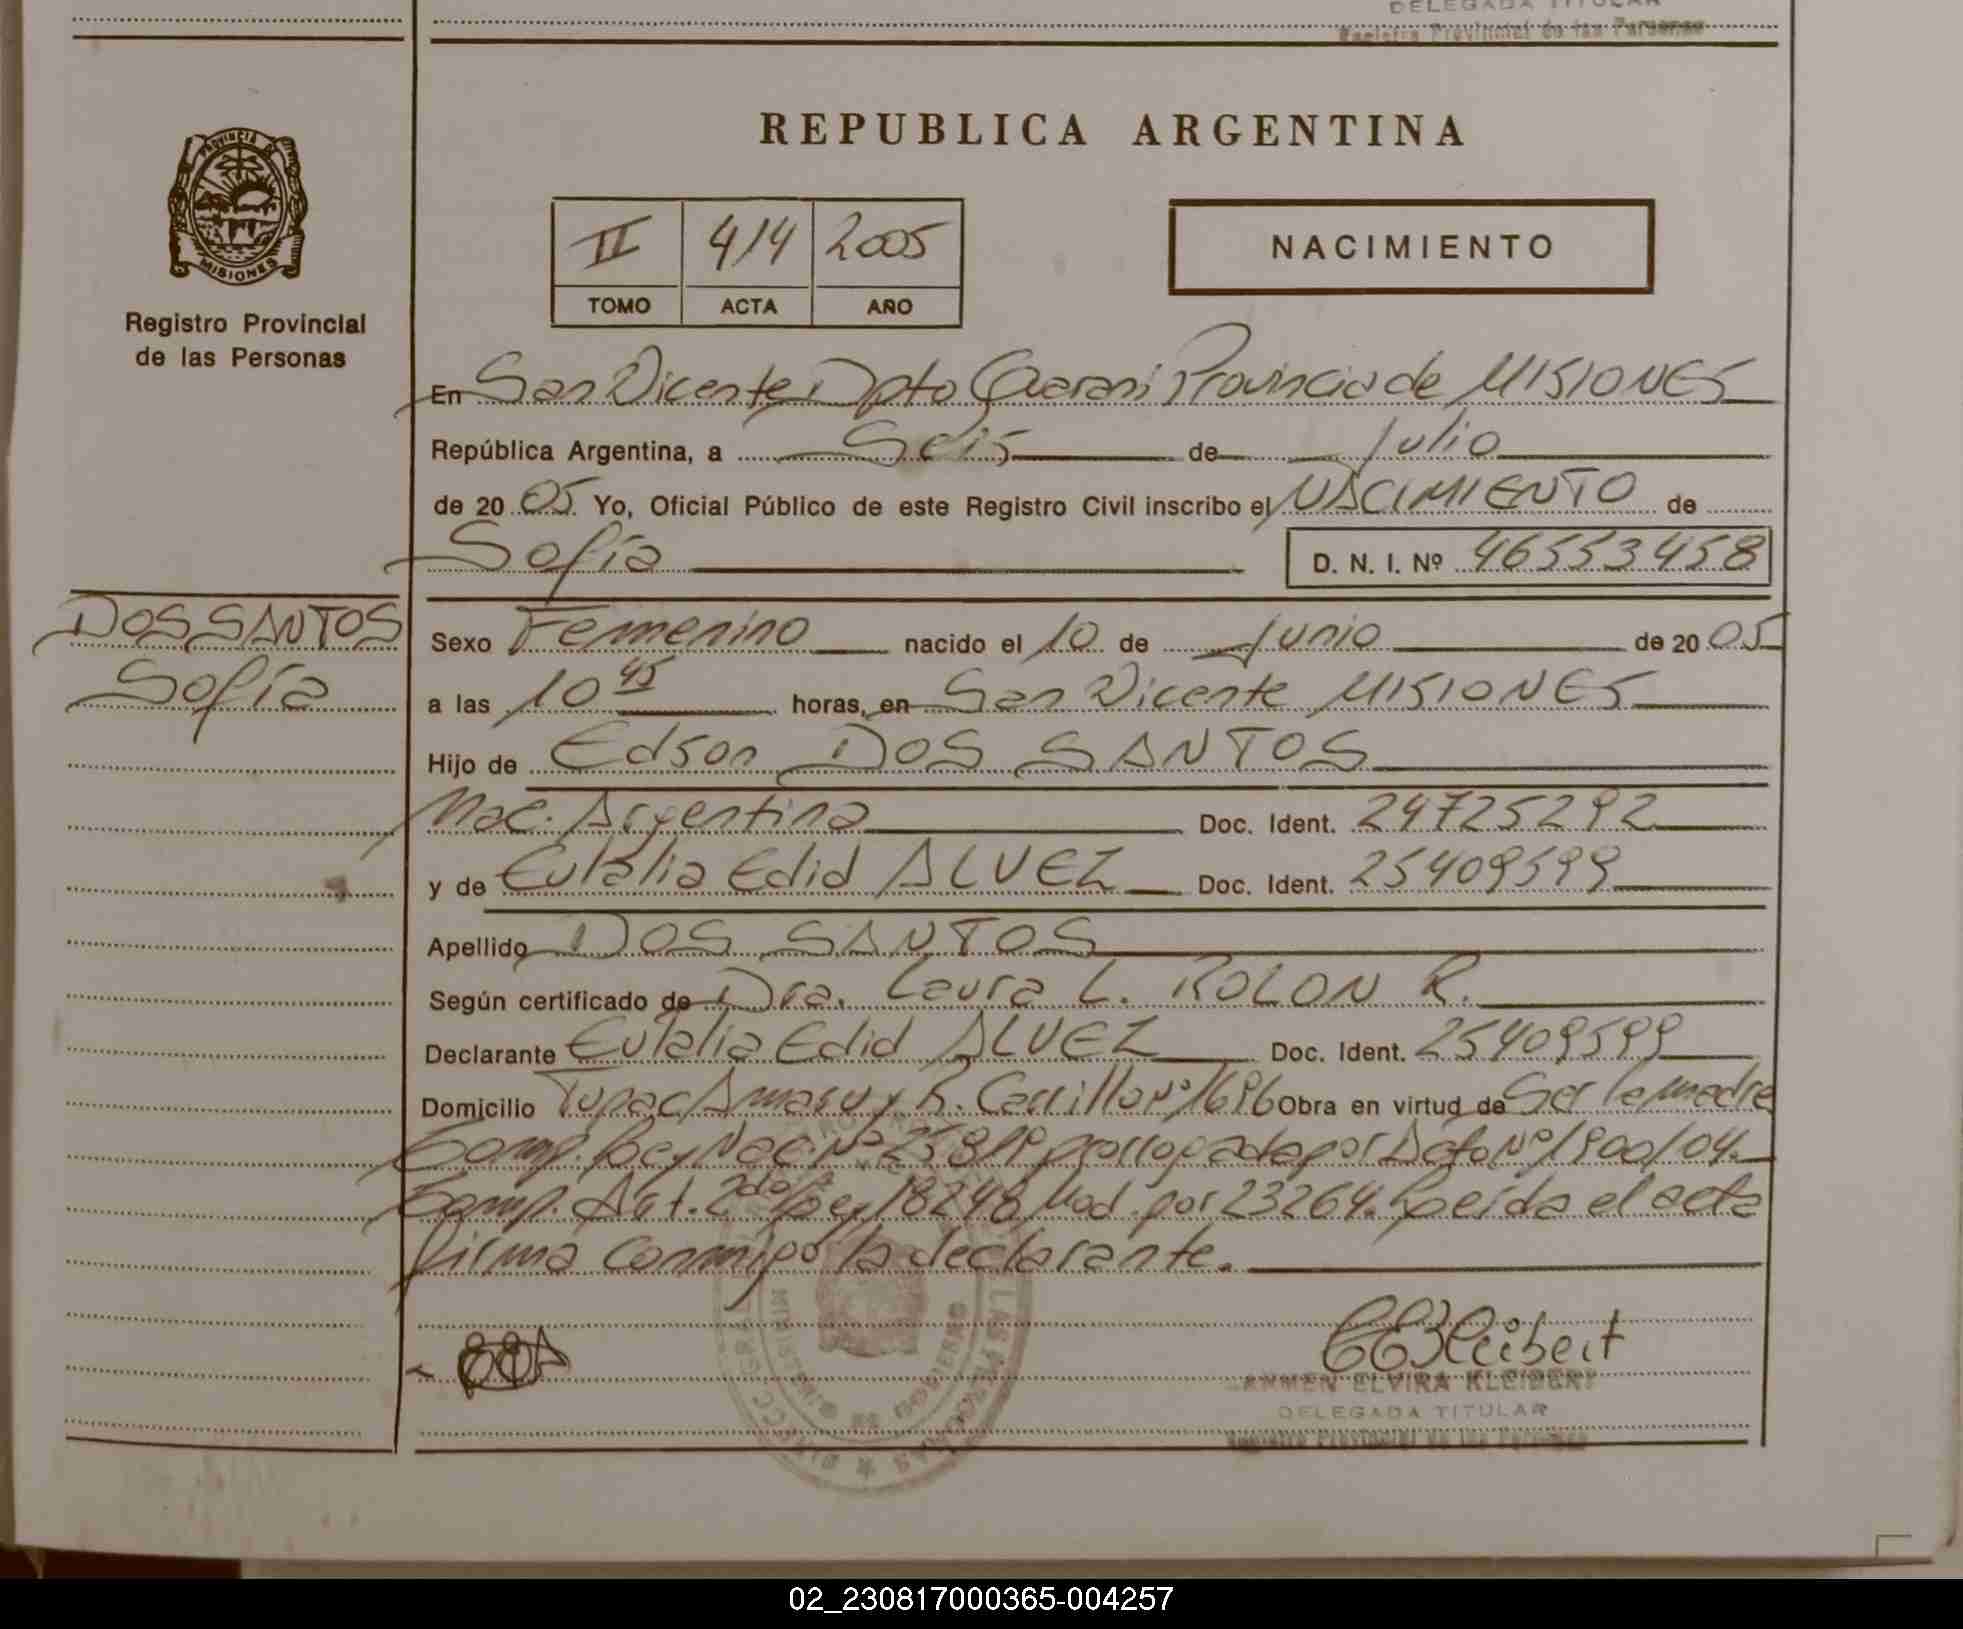 DELEGADA TITULAR
Registro Provincial de las Personas
REPUBLICA ARGENTINA
PROVINCIA DE
MISIONES
Registro Provincial
de las Personas
II 414 2005
TOMO ACTA AÑO
NACIMIENTO
En San Vicente Dpto Guarani Provincia de MISIONES
República Argentina, a Seis de Julio
de 2005 Yo, Oficial Público de este Registro Civil inscribo el NACIMIENTO de
Sofía D. N. I. Nº 46553458
DOS SANTOS
Sofía
Sexo Femenino nacido el 10 de Junio de 2005
a las 10 45 horas, en San Vicente MISIONES
Hijo de Edson DOS SANTOS
Nac. Argentina Doc. Ident. 24725292
y de Eulalia Edid ALVEZ Doc. Ident. 25409599
Apellido DOS SANTOS
Según certificado de Dra. Laura L. ROLON R.
Declarante Eulalia Edid ALVEZ Doc. Ident. 25409599
Domicilio Tupac Amaru y R. Carrillo Nº 1696 Obra en virtud de Ser la madre
Comp. Ley Nac. Nº 25819 prorrogada por Dcto Nº 1900/04.
Comp. Art. 2do Ley 18248 Mod. por 23264. Leída el acta
firma conmigo la declarante.
MINISTERIO DE GOBIERNO
LAS PERSONAS
CEKleibert
CARMEN ELVIRA KLEIBERT
DELEGADA TITULAR
Registro Provincial de las Personas
02_230817000365-004257